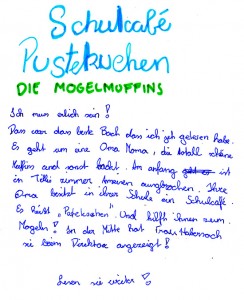 Schulcafé
Pustekuchen
DIE MOGELMUFFINS
Ich mus erlich sein!
Das war das beste Buch das ich jeh gelesen habe.
Es geht um eine Oma Mona, die total schöne
Muffins und sonst backt. Am anfang
in Tilli zimmer ausgbrochen. Ihre
Oma besitzt in ihrer Schule ein Schulcafé.
Es heißt "Putekuchen". Und hilft ihnen zum
Mogeln! In der Mitte hat Frau Habersack
sie beim Direktor angezeigt!
Lesen sie wieter!